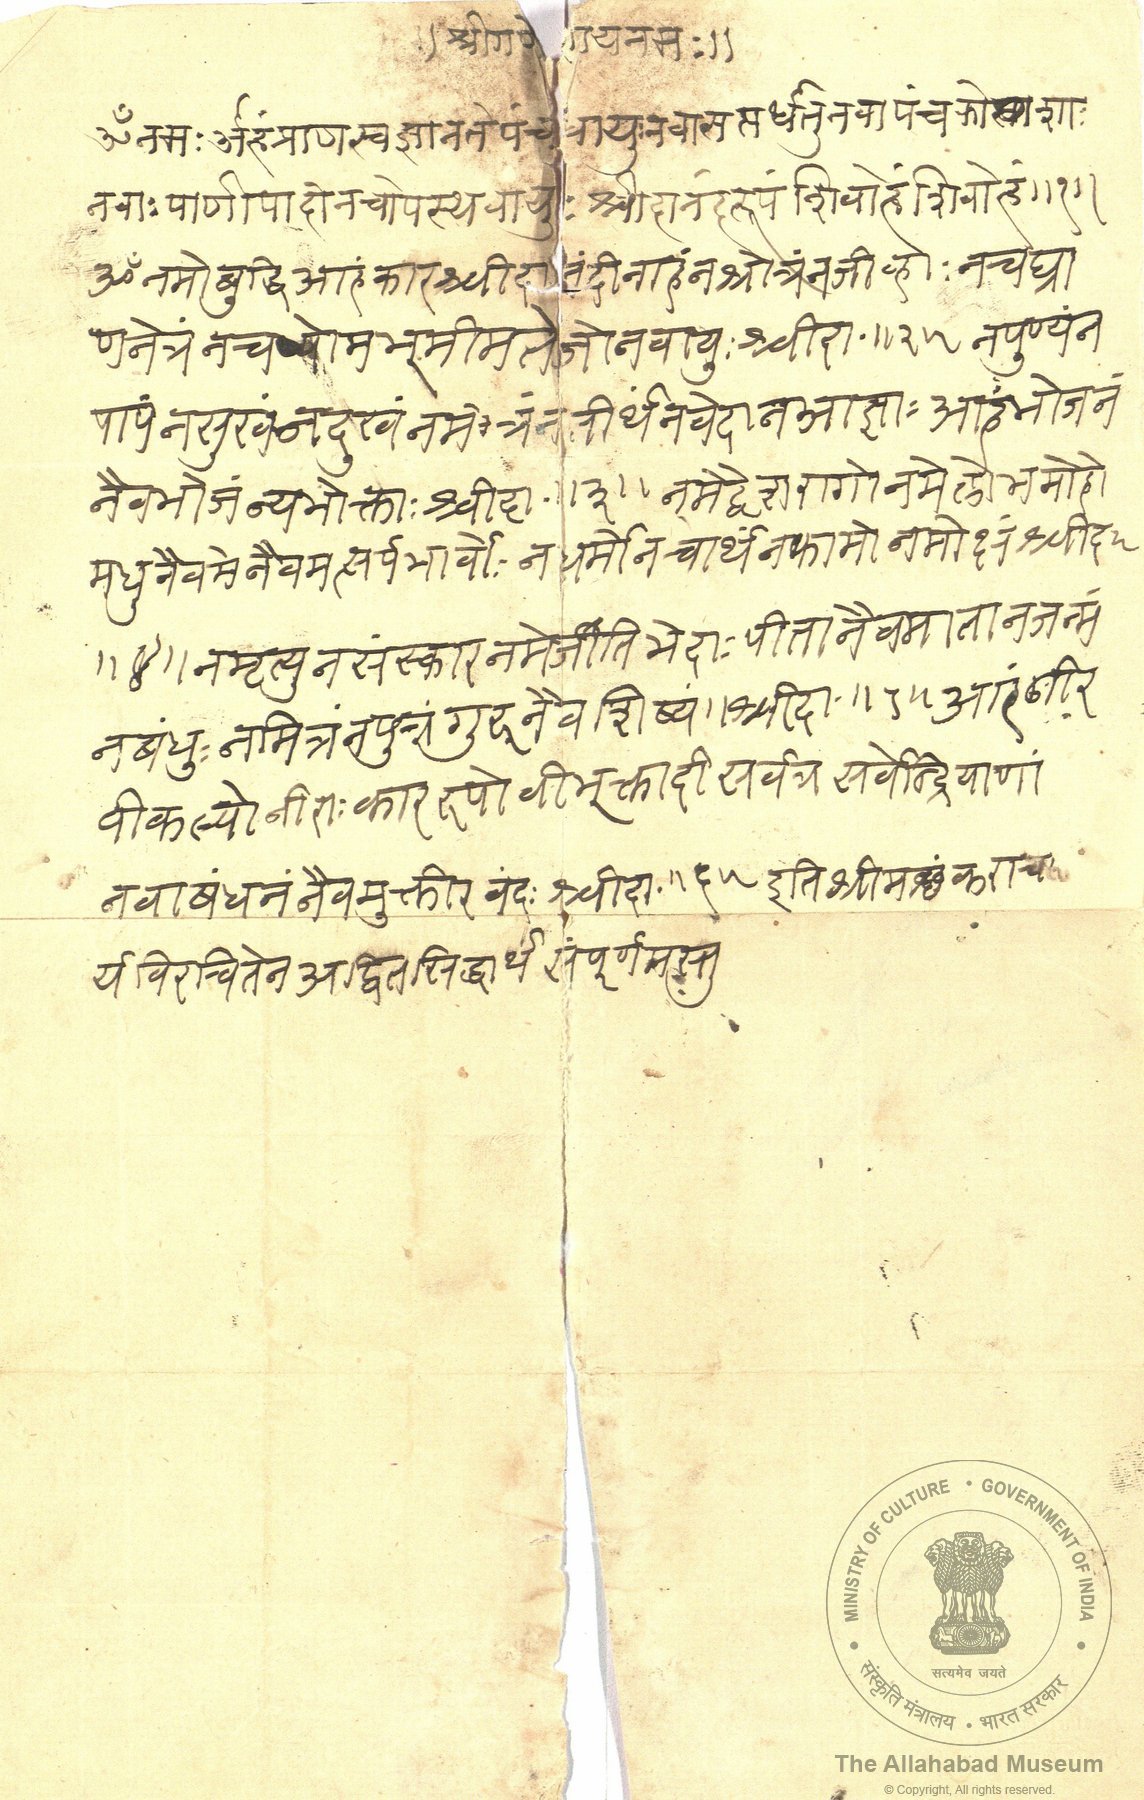 ।। श्रीगणे ायनमः ।।
ॐ नमः अहंप्राणस्वज्ञानतेपंच वायुःनवासप्तर्धतुनवापंचकोशाः
नवाःपाणीपादोनचोपस्थवायुः श्चीदानंदरूपं शिवोहं शिवोहं ॥१॥
ॐ नमोबुद्धि आहंकारश्चीदानंदीनाहंनश्रोत्रंनजीव्हाः नचघ्रा
णनेत्रं नच व्योमभूमीमतेजोनवायुः श्चीदा ॥२॥ नपुण्यंन
पापंनसुखंनदुखंनमंत्रंनतीर्थंनवेदानआज्ञाः आहंभोजनं
नैवभोजंन्यभोक्ताः श्चीदा ॥३॥ नमेद्वेशरागोनमेलोभमोहो
मधुनैवमेनैवमत्सर्पभार्वोः नधर्मोनचार्थंनकामोनमोक्षंश्चीदा
॥४॥ नमृत्युनसंस्कारनमेजातिभेदाः पीतानैवमातानजन्मं
नबंधुः नमित्रंनपुत्रंगुरूनैवशिष्यं ॥श्चीदा ॥५॥ आहंनीर
वीकल्पोनीराःकाररूपो वीभूक्तादी सर्वत्र सर्वेन्द्रियाणां
नवाबंधनंनैवमुक्तीरवंदः श्चीदा ॥६॥ इतिश्रीमछंकराच
र्यविरचितेन अद्वितसिद्धार्थ संपूर्णमस्तु
MINISTRY OF CULTURE • GOVERNMENT OF INDIA
सत्यमेव जयते
संस्कृति मंत्रालय • भारत सरकार
The Allahabad Museum
© Copyright, All rights reserved.